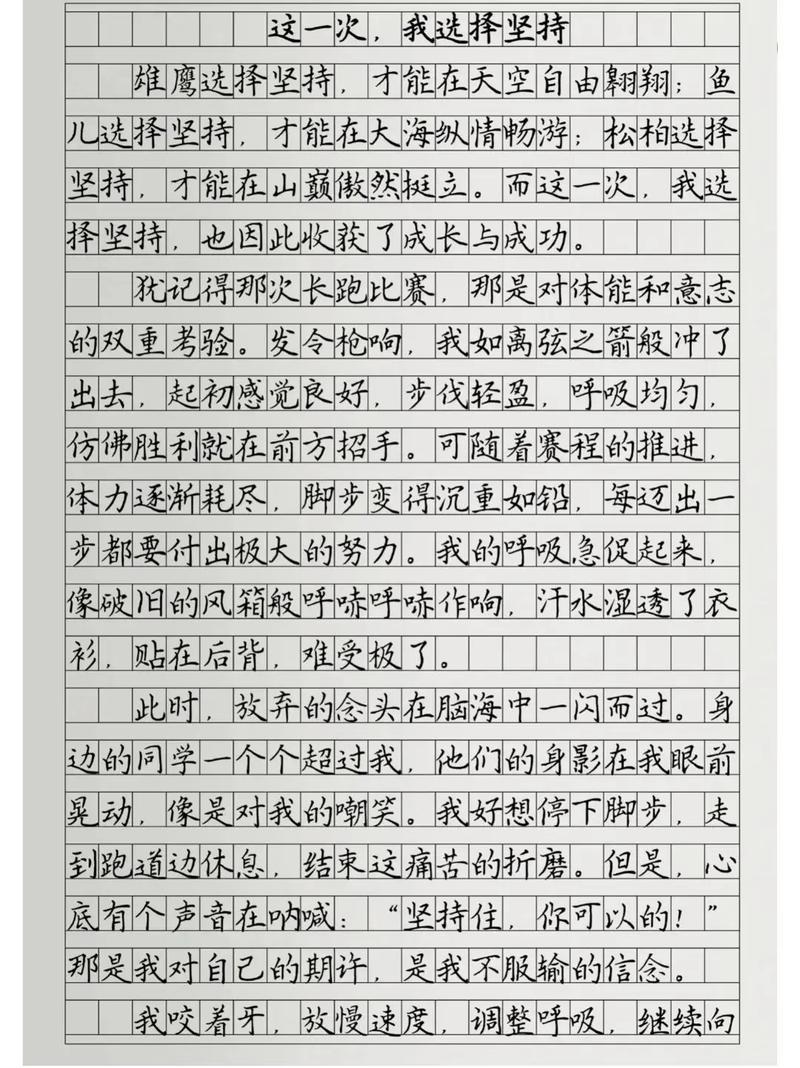 这一次，我选择坚持
雄鹰选择坚持，才能在天空自由翱翔；鱼
儿选择坚持，才能在大海纵情畅游；松柏选择
坚持，才能在山巅傲然挺立。而这一次，我选
择坚持，也因此收获了成长与成功。
犹记得那次长跑比赛，那是对体能和意志
的双重考验。发令枪响，我如离弦之箭般冲了
出去，起初感觉良好，步伐轻盈，呼吸均匀，
仿佛胜利就在前方招手。可随着赛程的推进，
体力逐渐耗尽，脚步变得沉重如铅，每迈出一
步都要付出极大的努力。我的呼吸急促起来，
像破旧的风箱般呼哧呼哧作响，汗水湿透了衣
衫，贴在后背，难受极了。
此时，放弃的念头在脑海中一闪而过。身
边的同学一个个超过我，他们的身影在我眼前
晃动，像是对我的嘲笑。我好想停下脚步，走
到跑道边休息，结束这痛苦的折磨。但是，心
底有个声音在呐喊：“坚持住，你可以的！”
那是我对自己的期许，是我不服输的信念。
我咬着牙，放慢速度，调整呼吸，继续向